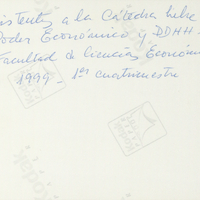 istentes a la Cátedra hebe
Poder Económico y DDHH -
Facultad de Ciencias Económi
1999 - 1er cuatrimestre
Kodak